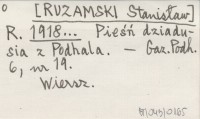 o [RUZAMSKI Stanisław]
R. 1918... Pieśń dziadu-
sia z Podhala. — Gaz. Podh.
6, nr 19.
Wiersz.